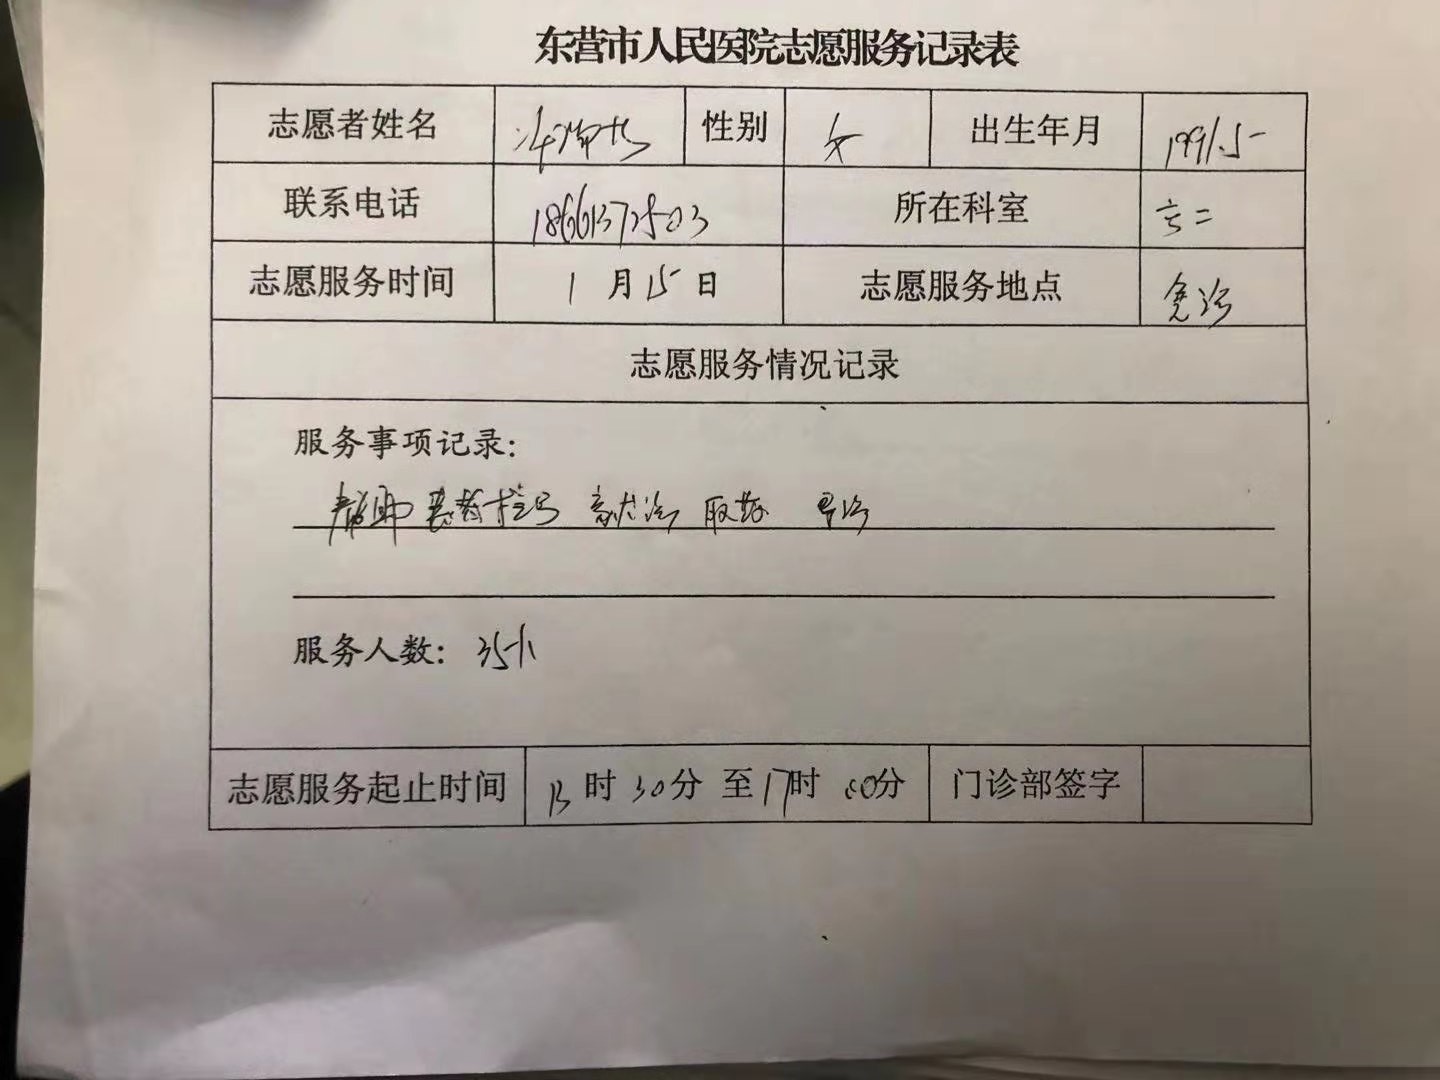 东营市人民医院志愿服务记录表
志愿者姓名 性别 女 出生年月 1991.5
联系电话 18661372503 所在科室
志愿服务时间 1月15日 志愿服务地点 急诊
志愿服务情况记录
服务事项记录:
帮助患者挂号 取药 导诊
服务人数: 35个
志愿服务起止时间 13时30分至17时00分 门诊部签字